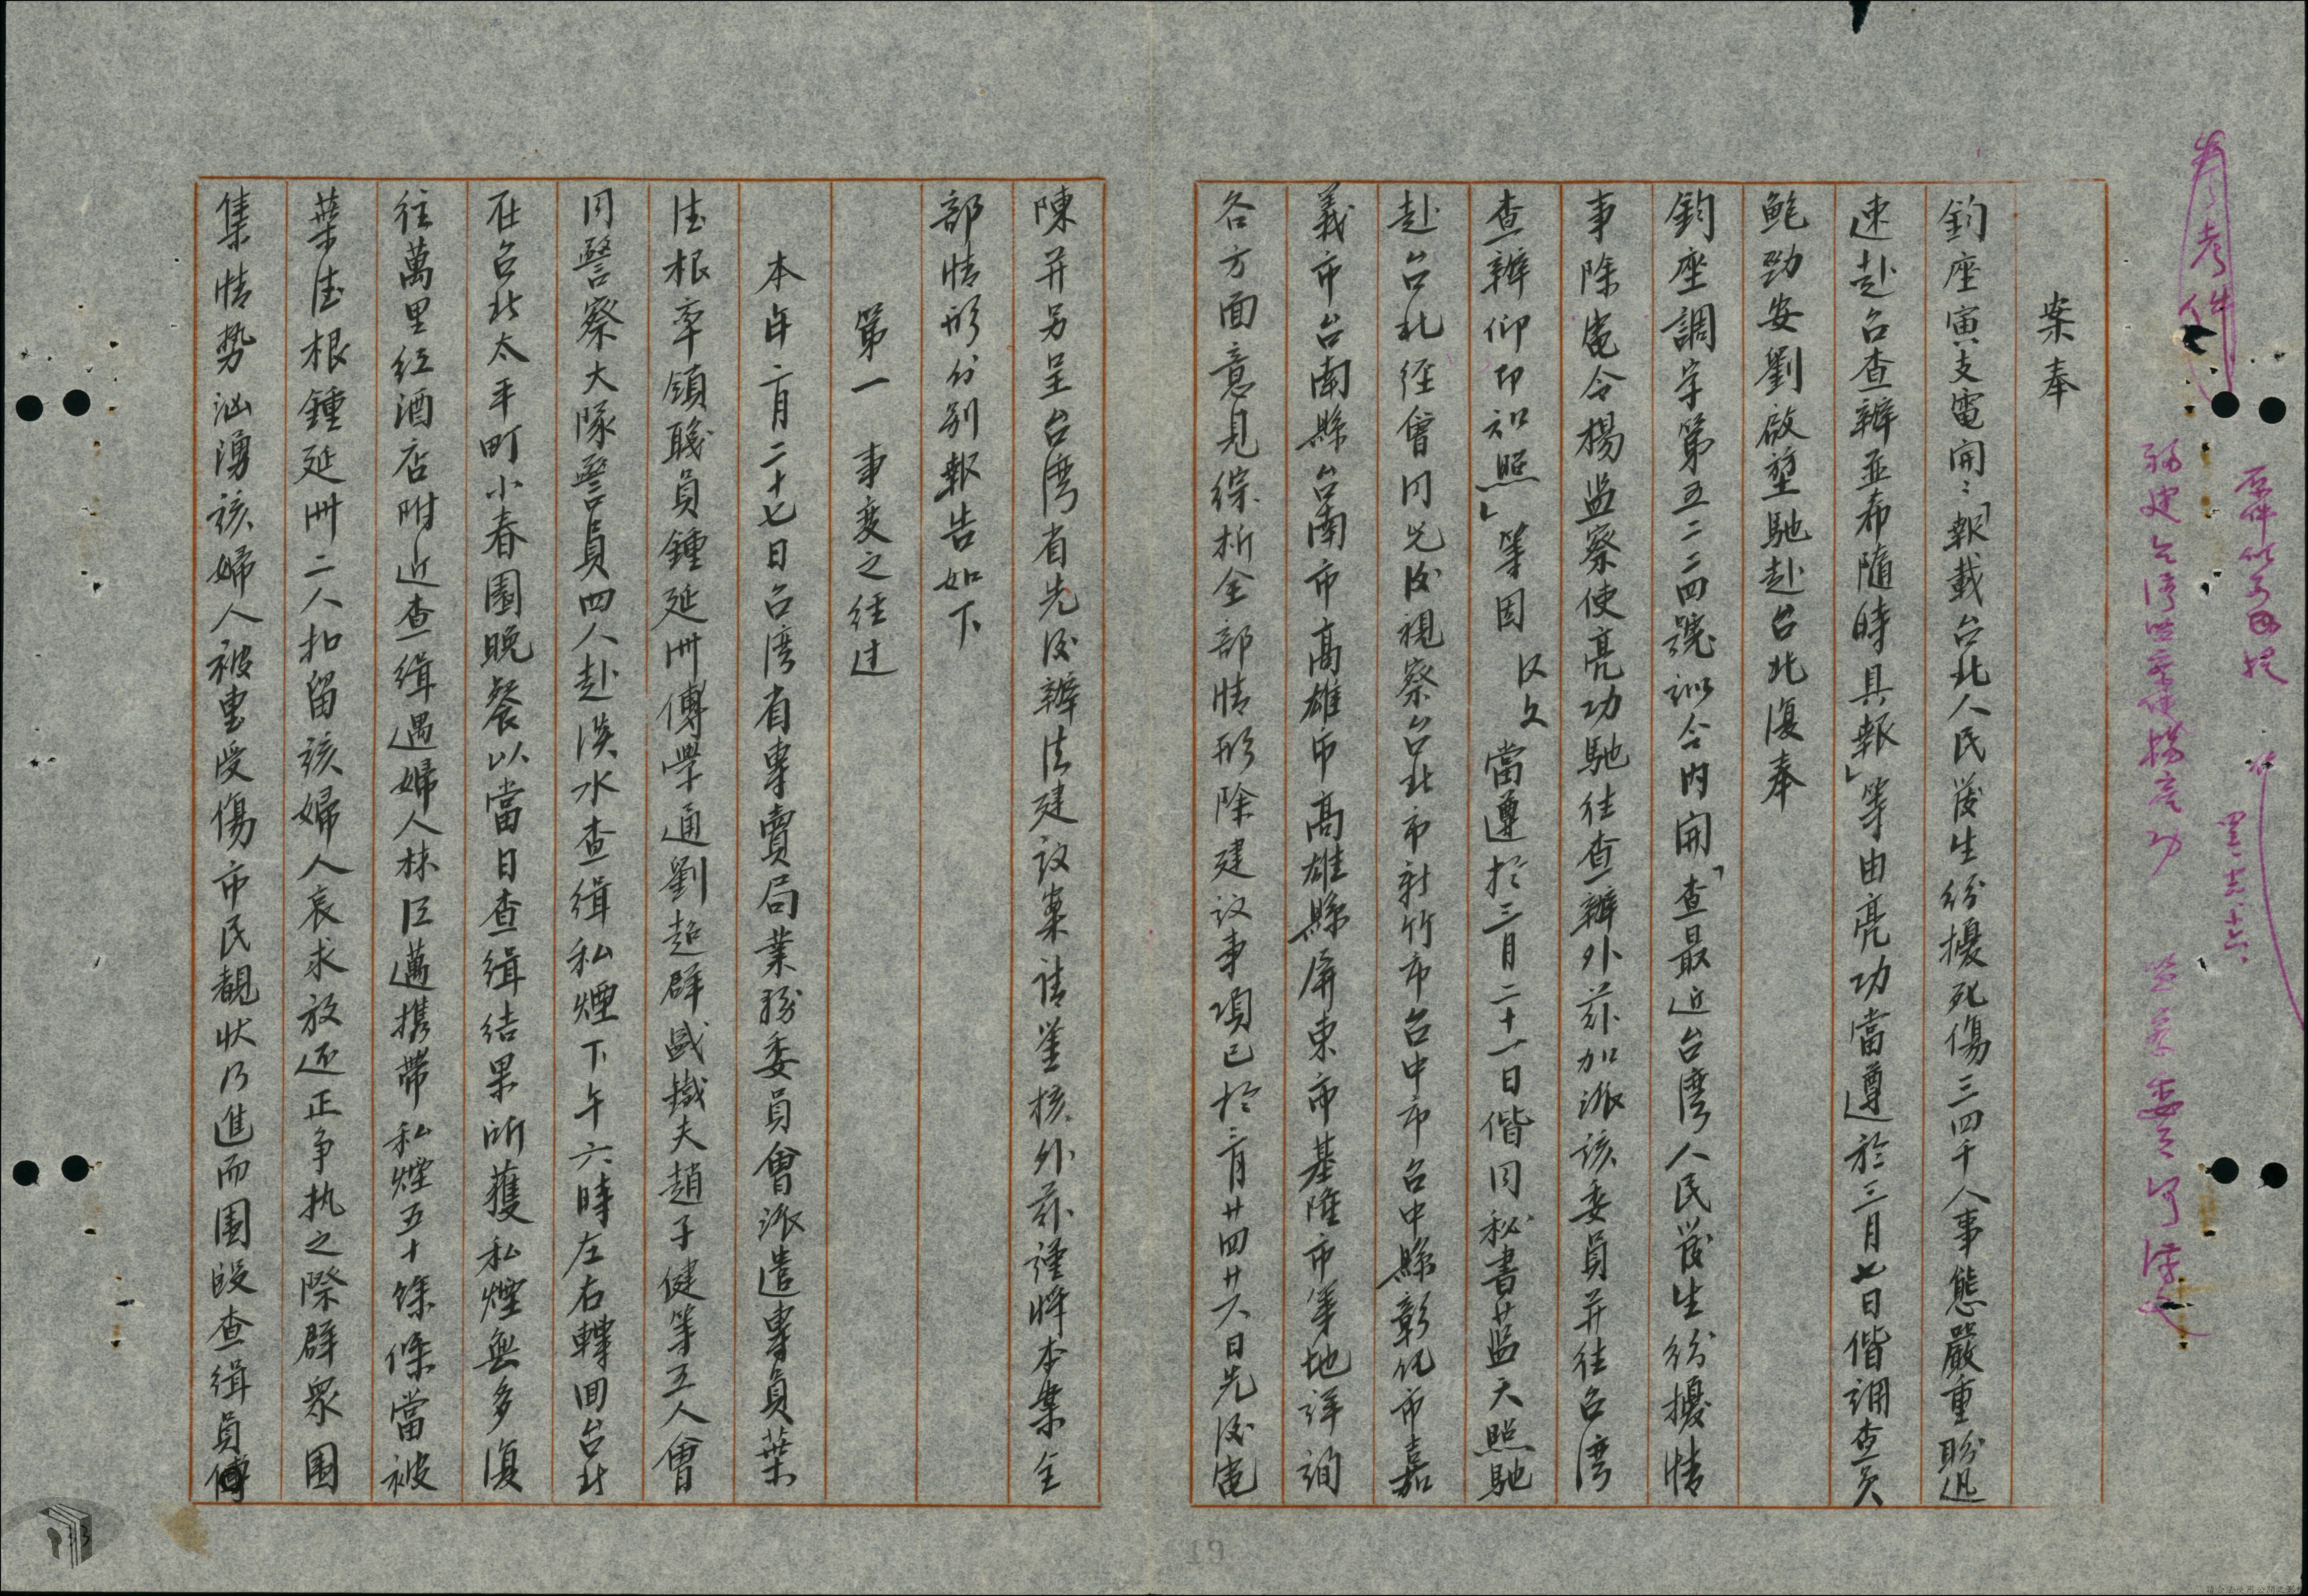 參考件
案奉
鈞座寅支電開：「報載台北人民發生紛擾死傷三四千人事態嚴重盼迅
速赴台查辦並希隨時具報」等由亮功當遵於三月七日偕調查員
鮑勁安劉啟堃馳赴台北復奉
鈞座調字第五二二四號訓令內開「查最近台灣人民發生紛擾情
事除電令楊監察使亮功馳往查辦外茲加派該委員并往台灣
查辦仰即知照」等因漢文當遵於三月二十一日偕同秘書藍天照馳
赴台北經會同先後視察台北市新竹市台中市台中縣彰化市嘉
義市台南縣台南市高雄市高雄縣屏東市基隆市等地詳詢
各方面意見綜析全部情形除建議事項已於三月廿四廿六日先後電
陳并另呈台灣省先後辦法建議案請鑒核外茲謹將本案全
部情形分別報告如下
第一 事變之經過
本年二月二十七日台灣省專賣局業務委員會派遣專員葉
德根率領職員鍾延洲傅學通劉超群盛鐵夫趙子健等五人會
同警察大隊警員四人赴淡水查緝私煙下午六時左右轉回台北
在台北太平町小春園晚餐以當日查緝結果所獲私煙無多復
往萬里紅酒店附近查緝遇婦人林江邁携帶私煙五十餘條當被
葉德根鍾延洲二人扣留該婦人哀求放还正争执之際群眾圍
集情勢洶湧該婦人被擊受傷市民覩狀乃進而圍毆查緝員傅